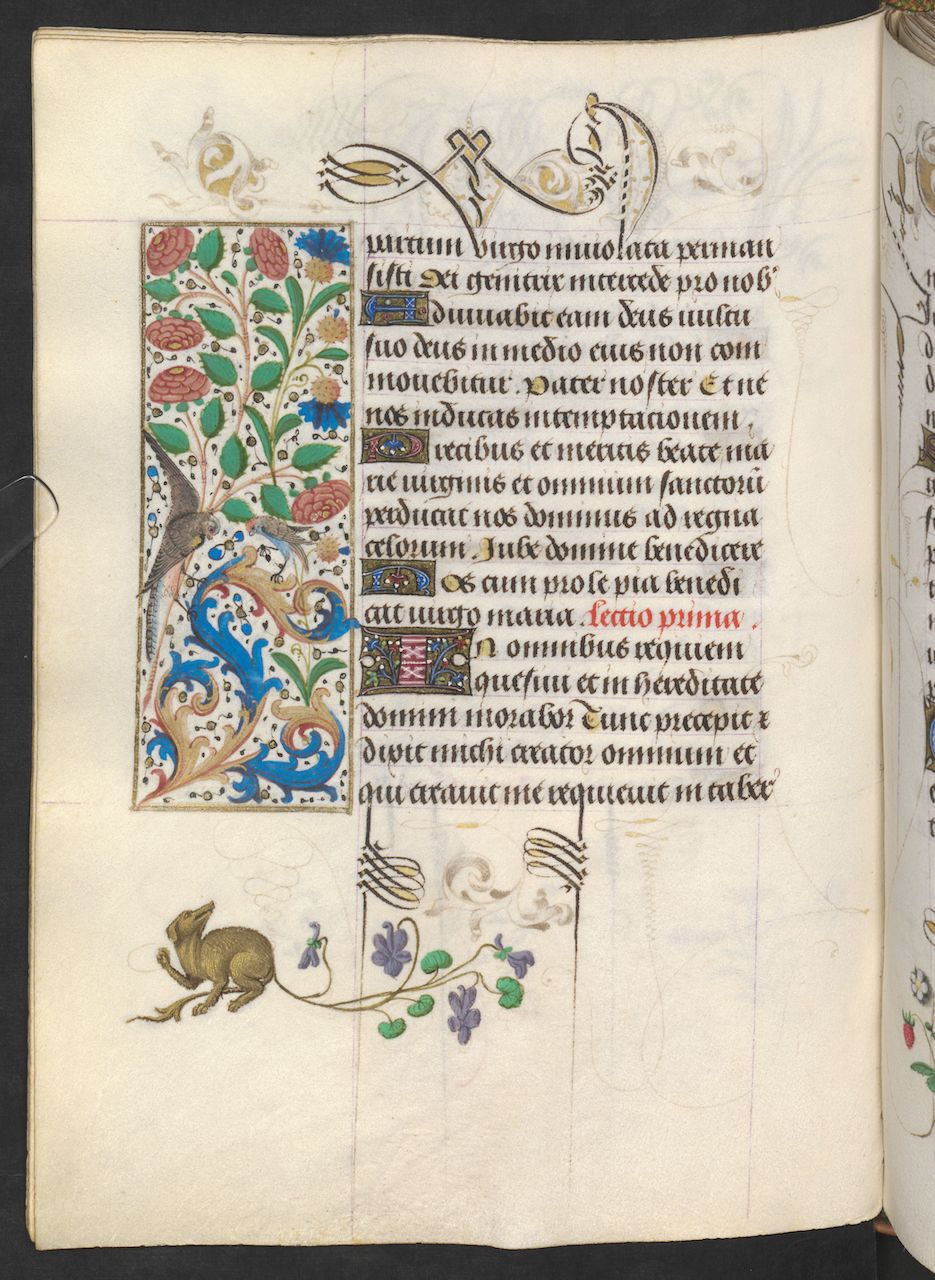 partum virgo inviolata perman
sisti Dei genitrix intercede pro nob'
Adiuvabit eam deus uultu
suo deus in medio eius non com
mouebitur. Pater noster Et ne
nos inducas in temptacionem.
Precibus et meritis beate ma
rie uirginis et omnium sanctorū
perducat nos dominus ad regna
celorum. Iube domine benedicere
Nos cum prole pia benedi
cat uirgo maria. Lectio prima.
In omnibus requiem
quesiui et in hereditate
domini morabor Tunc precepit &
dixit michi creator omnium et
qui creauit me requieuit in taber